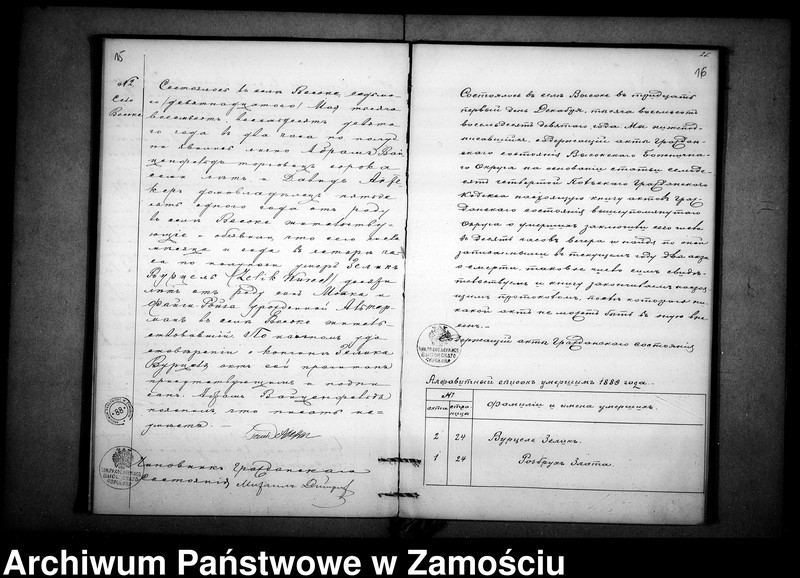 15
№ 2
Село
Высоке
Состоялось въ селѣ Высоке, седьмаго
/девятнадцатаго/ Мая тысяча
восемьсотъ восемьдесятъ девята-
го года въ два часа по полу-
дни явился лично Абрамъ Вай-
ценфельдъ торговецъ сорока
лѣтъ и Давидъ
пятьде-
сятъ одного года отъ роду
въ селѣ Высоке жительству-
ющіе и объявили, что сего числа
мѣсяца и года въ четыре ча-
са по полуночи умеръ Зеликъ
Вурцель (Zelik Wurcel)
лѣтъ отъ роду сынъ Мошка и
Файги Ройза урожденной
въ селѣ Высоке житель-
ствовавшій. По настоящемъ удо-
стовѣреніи о кончинѣ Зелика
Вурцеля актъ сей прочитанъ
присутствующимъ и подпи-
санъ. Абрамъ Вайценфельдъ
показалъ что писать не-
умѣетъ. —
Чиновникъ Гражданскаго
Состоянія Михаилъ
88
16
Состоялось въ селѣ Высоке въ тридцать
первый день Декабря, тысяча восемьсотъ
восемьдесятъ девятаго года. Мы нижепод-
писавшійся, содержащій акты граждан-
скаго состоянія Высокскаго Божнична-
го Округа на основаніи статьи семьде-
сятъ четвертой Гражданскаго
Кодекса настоящую книгу актовъ Граж-
данскаго состоянія вышеупомянутаго
Округа о умершихъ заключили сего числа
въ десять часовъ вечера и найдя по оной
записанными въ текущемъ году два акта
о смерти, таковое число симъ свидѣ-
тельствуемъ и книгу заканчиваемъ настоя-
щимъ протоколомъ, послѣ котораго ни-
какой актъ не можетъ быть въ оную вне-
сенъ. —
Содержащій акты Гражданскаго состоянія
Алфавитный списокъ умершимъ 1889 года.
№
акта
стра-
ницы
Фамиліи и имена умершихъ.
2 24 Вурцель Зеликъ.
1 24 Розбрухъ Злата.
Archiwum Państwowe w Zamościu